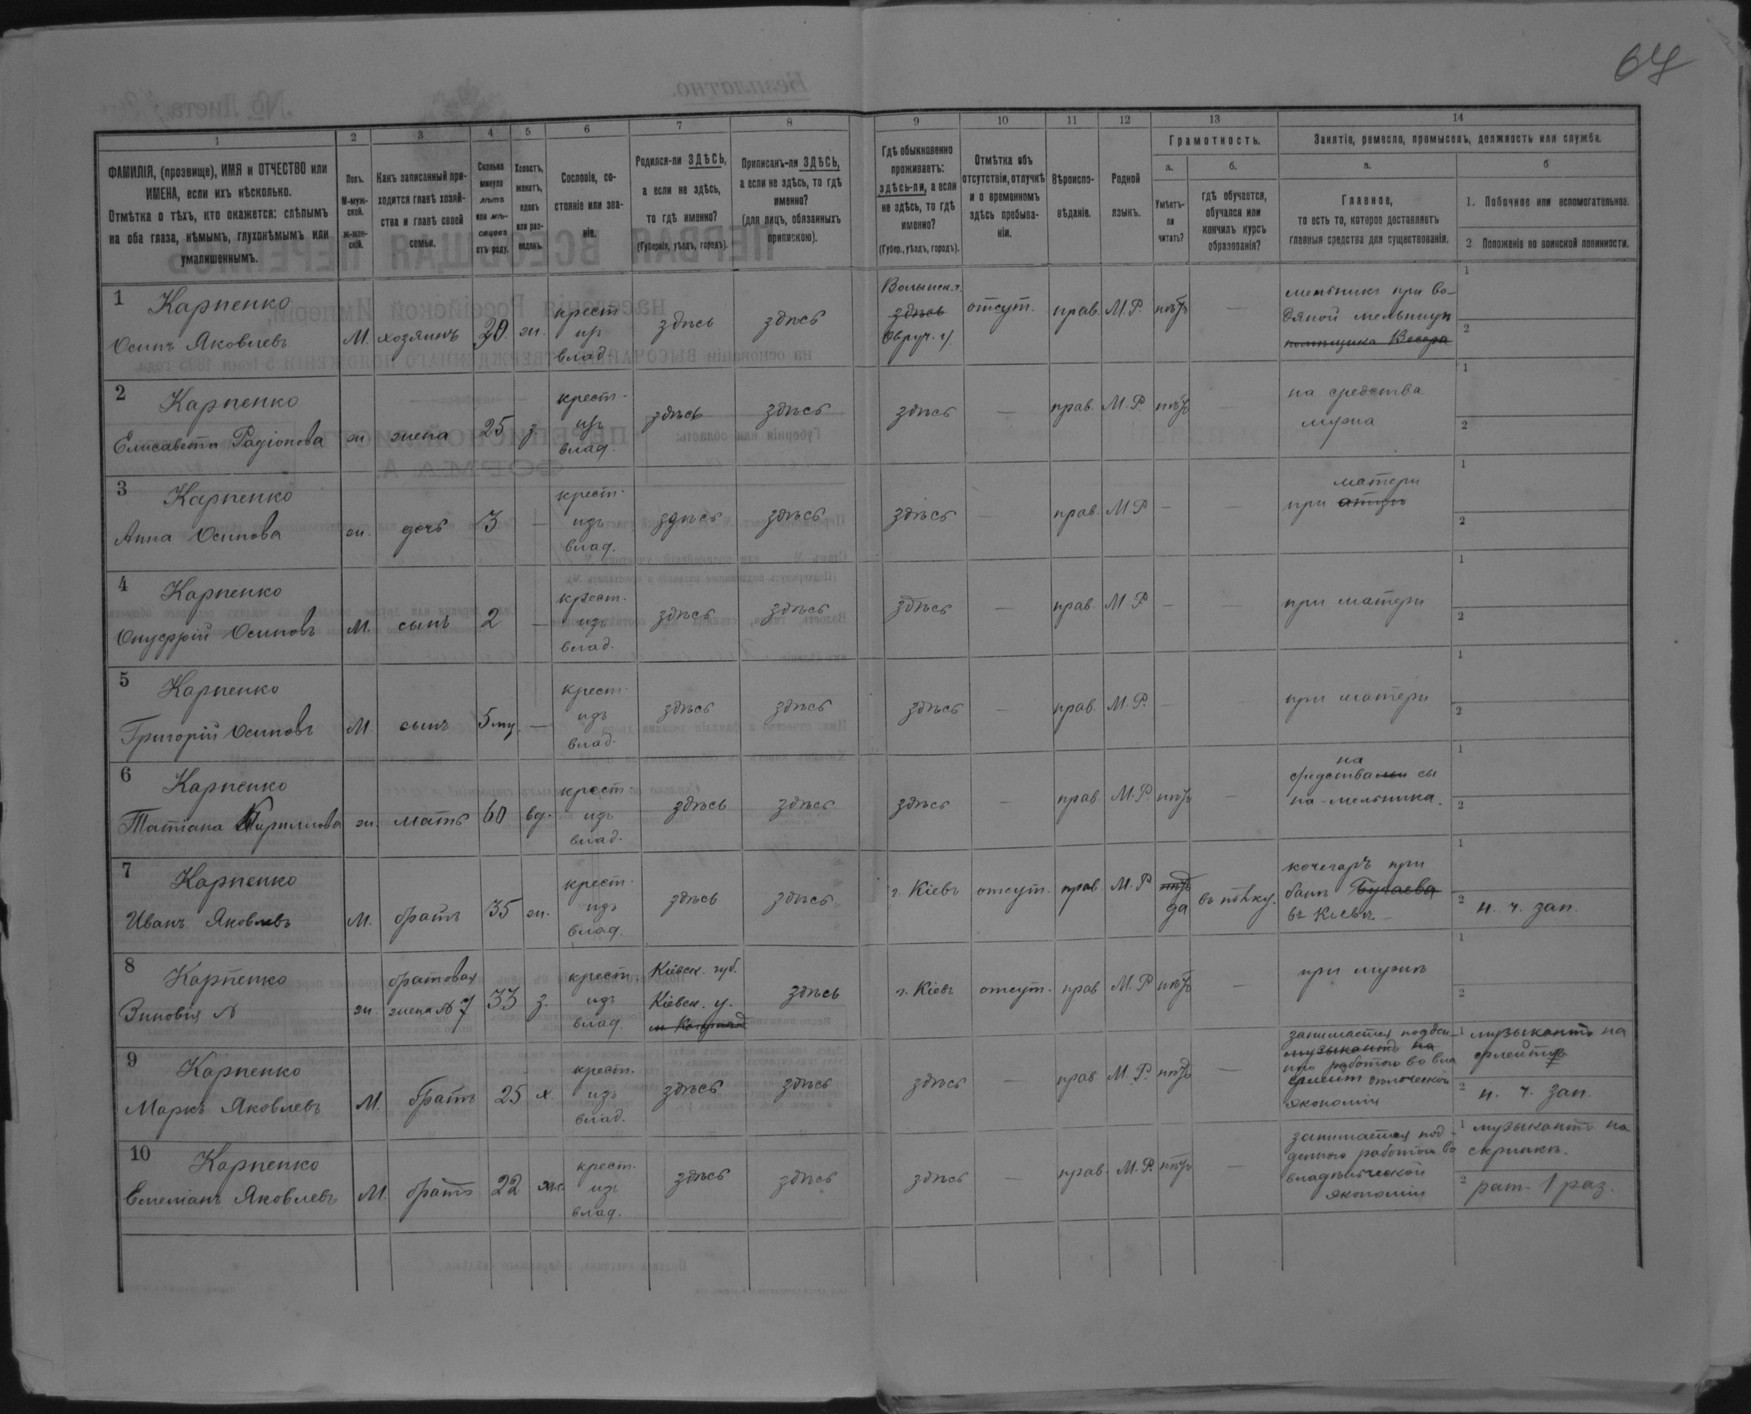 64
1 2 3 4 5 6 7 8 9 10 11 12 13 14
ФАМИЛІЯ, (прозвище), ИМЯ и ОТЧЕСТВО или
ИМЕНА, если ихъ нѣсколько.
Отмѣтка о тѣхъ, кто окажется: слѣпымъ
на оба глаза, нѣмымъ, глухонѣмымъ или
умалишеннымъ.
Полъ.
М-муж-
ской.
ж-жен-
скій.
Какъ записанный при-
ходится главѣ хозяй-
ства и главѣ своей
семьи.
Сколько
минуло
лѣтъ
или мѣ-
сяцевъ
отъ роду.
Холостъ,
женатъ,
вдовъ
или раз-
веденъ.
Сословіе, со-
стояніе или зва-
ніе.
Родился-ли ЗДѢСЬ,
а если не здѣсь,
то гдѣ именно?
(Губернія, уѣздъ, городъ).
Приписанъ-ли ЗДѢСЬ,
а если не здѣсь, то гдѣ
именно?
(для лицъ, обязанныхъ
припискою).
Гдѣ обыкновенно
проживаетъ:
здѣсь-ли, а если
не здѣсь, то гдѣ
именно?
(Губер., уѣздъ, городъ).
Отмѣтка объ
отсутствіи, отлучкѣ
и о временномъ
здѣсь пребыва-
ніи.
Вѣроиспо-
вѣданіе.
Родной
языкъ.
Грамотность.
а.
Умѣетъ-
ли
читать?
б.
гдѣ обучается,
обучался или
кончилъ курсъ
образованія?
Занятіе, ремесло, промыселъ, должность или служба.
а.
Главное,
то есть то, которое доставляетъ
главныя средства для существованія.
б
1. Побочное или вспомогательное.
2 Положеніе по воинской повинности.
1 Карпенко
Осипъ Яковлевъ
М. хозяинъ 30. ж.
крест
изъ
влад.
здѣсь здѣсь
Волынск. г.
здѣсь
Овруч. у.
отсут. прав. М.Р. нѣтъ —
мельникъ при во-
дяной мельницѣ
помѣщика
1
2
2 Карпенко
Елисавета Радіонова
ж жена 25 з
крест.
изъ
влад.
здѣсь здѣсь здѣсь — прав. М.Р. нѣтъ
на средства
мужа
1
2
3 Карпенко
Анна Осипова
ж. дочь 3 —
крест.
изъ
влад.
здѣсь здѣсь здѣсь — прав. М.Р — —
матери
при отцѣ
1
2
4 Карпенко
Онуфрій Осиповъ
М. сынъ 2 —
крест.
изъ
влад.
здѣсь здѣсь здѣсь — прав. М Р — —
при матери
1
2
5 Карпенко
Григорій Осиповъ
М сынъ 5 мц. —
крест.
изъ
влад.
здѣсь здѣсь здѣсь — прав. М.Р. — —
при матери
1
2
6 Карпенко
Татіана Кирилова
ж. мать 60 вд.
крест
изъ
влад.
здѣсь здѣсь здѣсь — прав М.Р. нѣтъ —
на
средствами сы
на-мельника.
1
2
7 Карпенко
Иванъ Яковлевъ
М. братъ 35 ж.
крест.
изъ
влад.
здѣсь здѣсь г. Кіевъ отсут. прав М.Р
нѣтъ
да
въ полку.
кочегаръ при
банѣ
въ Кіевѣ
1
2 н. ч. зап.
8 Карпенко
Зиновія
ж.
братовая
жена № 7
33 з.
крест.
изъ
влад.
Кіевск. губ.
Кіевск. у.
здѣсь г. Кіевъ отсут. прав М.Р нѣтъ
при мужѣ
1
2
9 Карпенко
Маркъ Яковлевъ
М. братъ 25 х.
крест.
изъ
влад.
здѣсь здѣсь здѣсь — прав М.Р. нѣтъ —
занимается поден-
музыкантъ на
ною работою во вла
экономіи
1 музыкантъ на
флейтѣ
2 н. ч. зап.
10 Карпенко
Емеліанъ Яковлевъ
М. братъ 22
крест.
изъ
влад.
здѣсь здѣсь здѣсь — прав. М.Р. нѣтъ —
занимается под-
денною работою во
владѣльческой
экономіи
1 музыкантъ на
скрипкѣ.
2 рат. 1 раз.